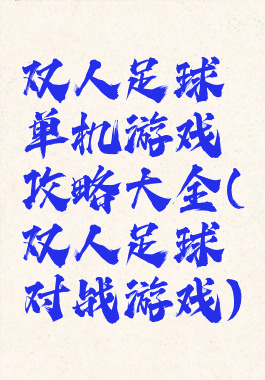 双人足球
单机游戏
攻略大全(
双人足球
对战游戏)